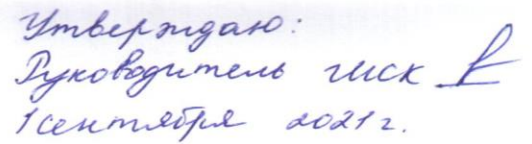 Утверждаю:
Руководитель ШСК
1 сентября 2021 г.